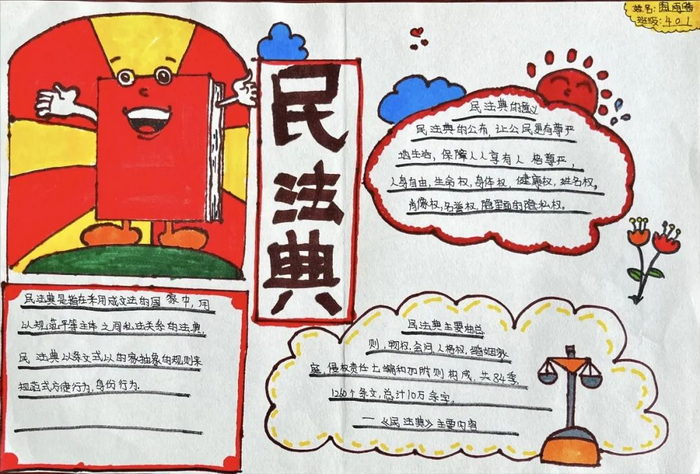 姓名:
班级: 401
民法典
民法典的意义
民法典的公布,让公民更有尊严
地生活,保障人人享有人格尊严,
人身自由,生命权,身体权,健康权,姓名权,
肖像权,名誉权,隐里面的隐私权。
民法典是指在采用成文法的国家中,用
以规范平等主体之间私法关系的法典,
民法典以条文式以的赛抽象的规则来
规范式方便行为,身份行为.
民法典主要由总
则,物权,合同,人格权,婚姻家
庭,侵权责任七编和加附则构成,共84章,
1260个条文,总计10万余字,
一《民法典》主要内容